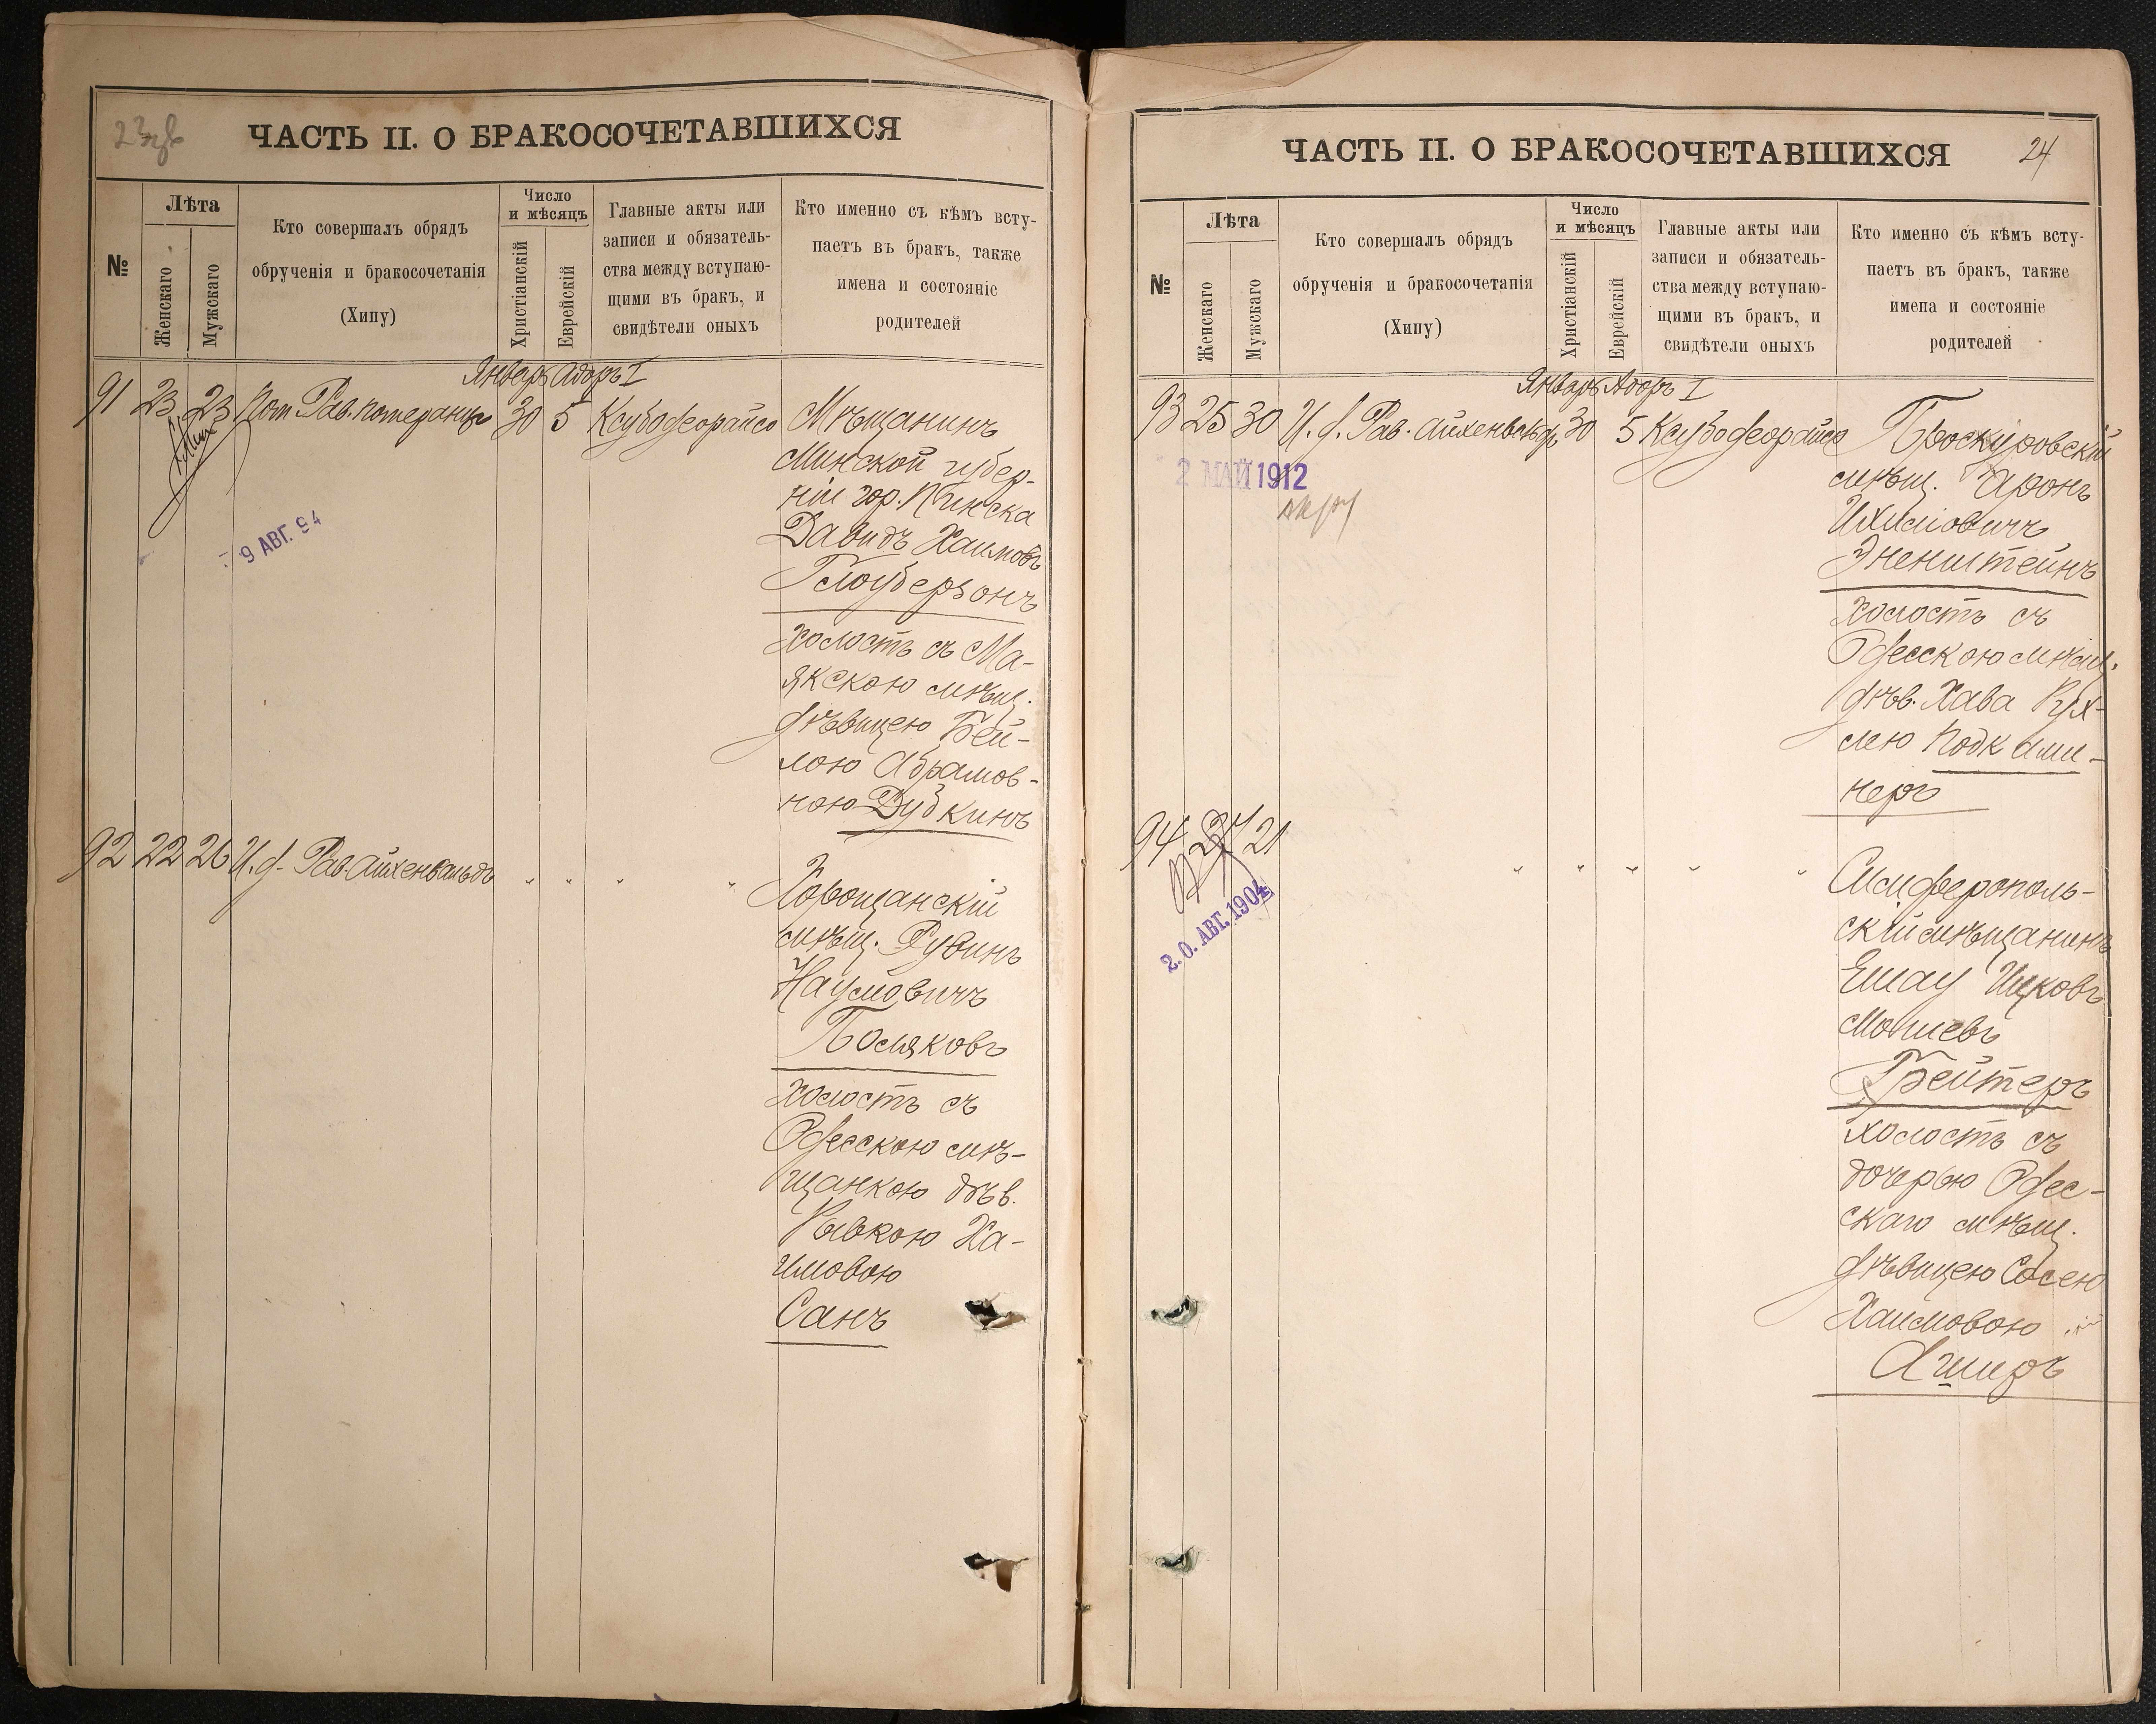 ЧАСТЬ II. О БРАКОСОЧЕТАВШИХСЯ
№
Лѣта
Женскаго
Мужскаго
Кто совершалъ обрядъ
обрученія и бракосочетанія
(Хипу)
Число
и мѣсяцъ
Христіанскій
Еврейскій
Главные акты или
записи и обязатель-
ства между вступаю-
щими въ бракъ, и
свидѣтели оныхъ
Кто именно съ кѣмъ всту-
паетъ въ бракъ, также
имена и состояніе
родителей
Январь Адаръ I
91 23 23 Пом. Рав. Померанцъ 30 5 Ксубодеорайсо Мѣщанинъ
Минской губер-
ніи гор. Пинска
Давидъ Хаимовъ
Глоуберзонъ
холостъ съ Ма-
якскою мѣщ.
дѣвицею Бей-
лою Абрамов-
ною Дубкинъ
9 АВГ. 94
92 22 26 И. д. Рав. Айхенвальдъ " " " " Хорощанскій
мѣщ. Рувинъ
Наумовичъ
Поляковъ
холостъ съ
Одесскою мѣ-
щанкою дѣв.
Рывкою Ха-
имовою
Санъ
ЧАСТЬ II. О БРАКОСОЧЕТАВШИХСЯ
24
№
Лѣта
Женскаго
Мужскаго
Кто совершалъ обрядъ
обрученія и бракосочетанія
(Хипу)
Число
и мѣсяцъ
Христіанскій
Еврейскій
Главные акты или
записи и обязатель-
ства между вступаю-
щими въ бракъ, и
свидѣтели оныхъ
Кто именно съ кѣмъ всту-
паетъ въ бракъ, также
имена и состояніе
родителей
Январь Адаръ I
93 25 30 И. д. Рав. Айхенвальдъ 30 5 Ксубодеорайсо Проскуровскій
мѣщ. Аронъ
Ихиловичъ
Эненштейнъ
холостъ съ
Одесскою мѣщ.
дѣв. Хава Рух-
лею Подками-
неръ
2 МАЙ 1912
94 27 21 " " " " " Симферополь-
скій мѣщанинъ
Ешау Ицковъ
Мошевъ
Грейтеръ
холостъ съ
дочерью Одес-
скаго мѣщ.
дѣвицею Сосею
Хаимовою
Аширъ
2.0. АВГ. 1904